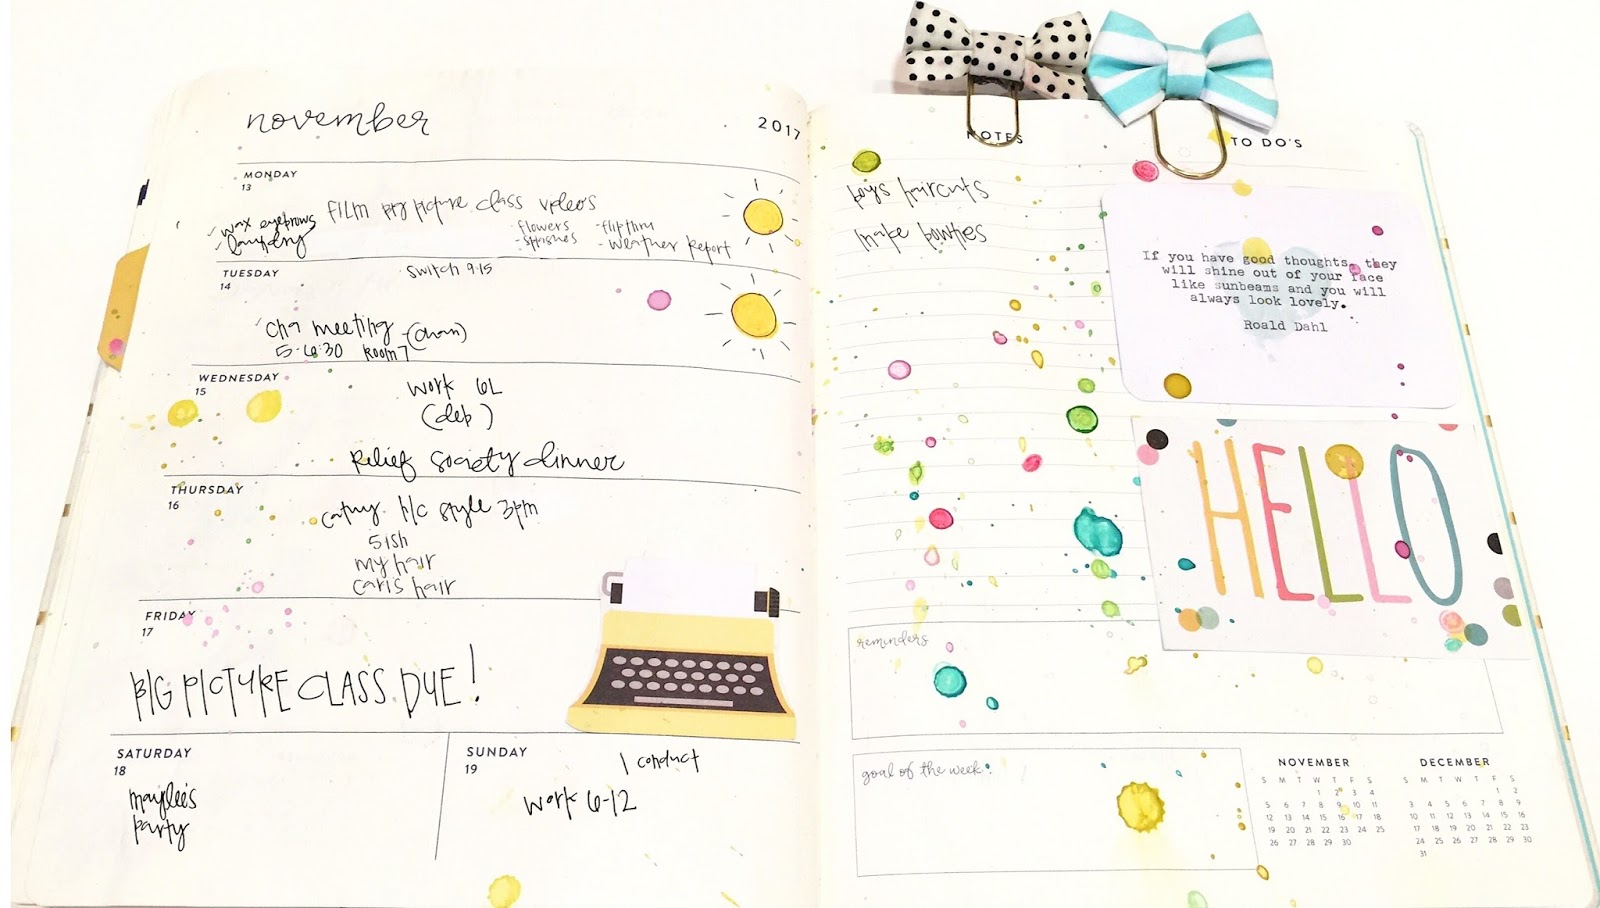 november
2017
MONDAY
13
wax eyebrows
laundry
FILM BIG PICTURE CLASS VIDEOS
flowers
- splashes
- flipthru
- weather report
TUESDAY
14
switch 9:15
cha meeting
5-6:30 room 7
WEDNESDAY
15
work 6
relief society dinner
THURSDAY
16
cathy h/c style 3pm
5ish
my hair
caris hair
FRIDAY
17
BIG PICTURE CLASS DUE!
SATURDAY
18
maylee's
party
SUNDAY
19
I conduct
work 6-12
NOTES
boys haircuts
make bowties
TO DO'S
If you have good thoughts, they
will shine out of your face
like sunbeams and you will
always look lovely.
Roald Dahl
HELLO
reminders
goal of the week:
NOVEMBER
S M T W T F S
1 2 3 4
5 6 7 8 9 10 11
12 13 14 15 16 17 18
19 20 21 22 23 24 25
26 27 28 29 30
DECEMBER
S M T W T F S
1 2
3 4 5 6 7 8 9
10 11 12 13 14 15 16
17 18 19 20 21 22 23
24 25 26 27 28 29 30
31